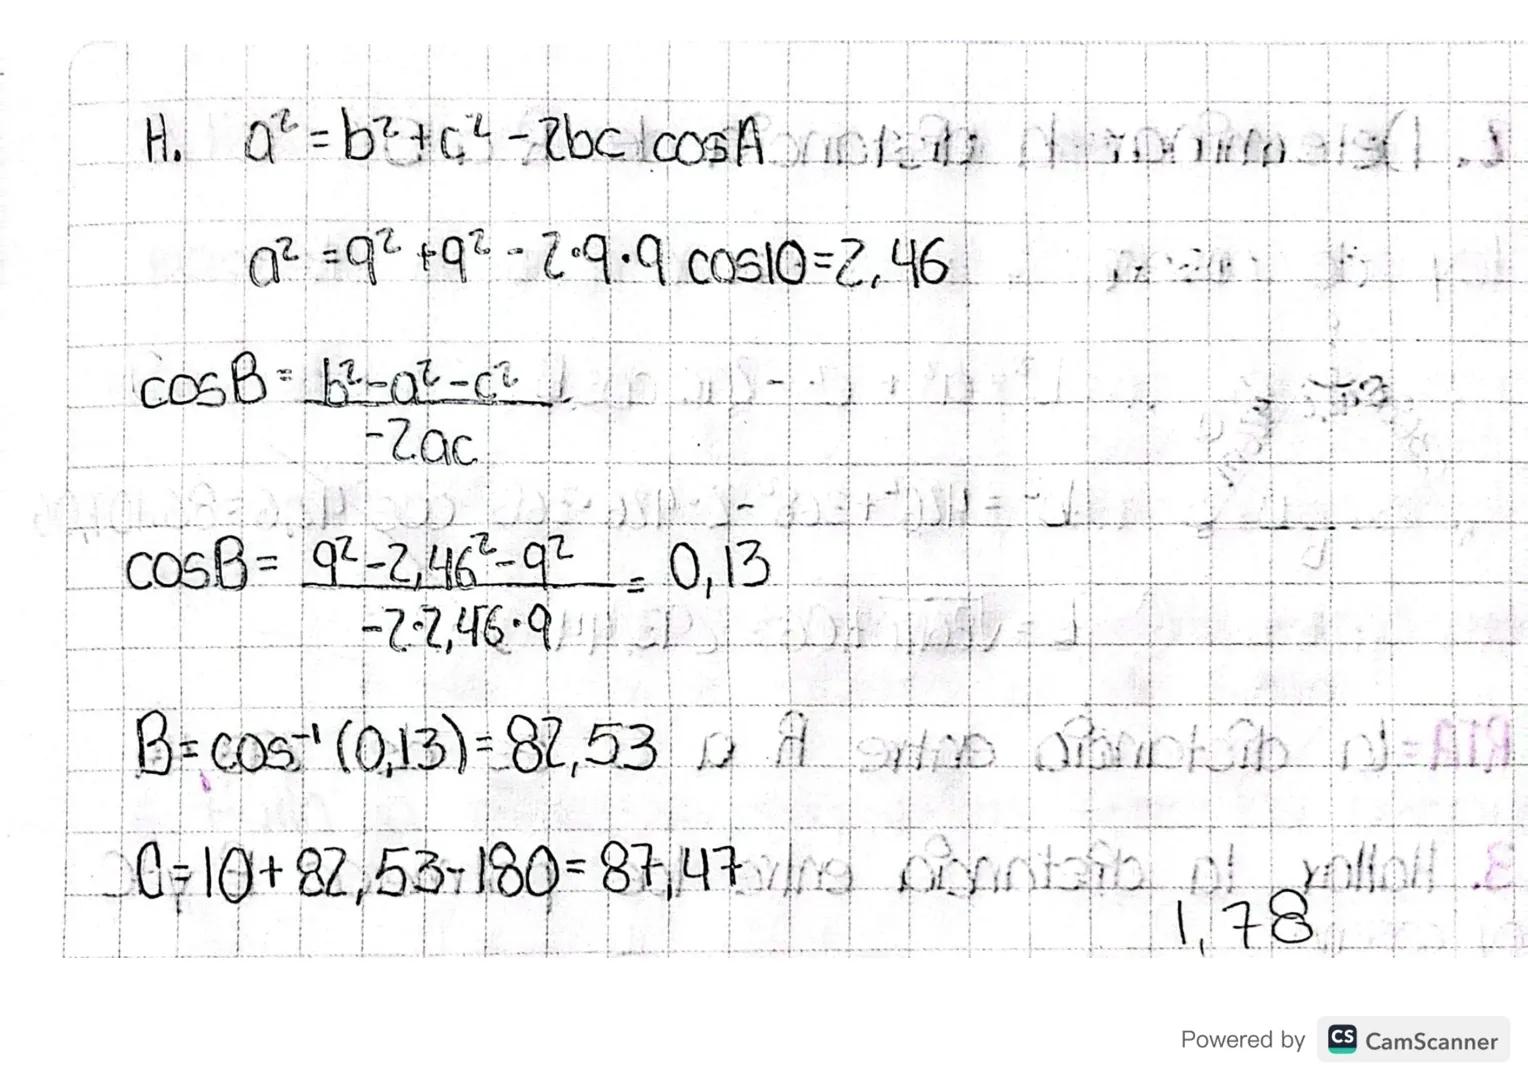 H. a² = b² + c² - 2bc cosA
a² = 9² + 9² - 2·9·9 cos10 = 2,46
cosB = b² - a² - c²
-2ac
cosB = 9² - 2,46² - 9² = 0,13
-2·2,46·9
B = cos⁻¹ (0,13) = 82,53
C = 10 + 82,53 - 180 = 87,47
1,78
Powered by CS CamScanner